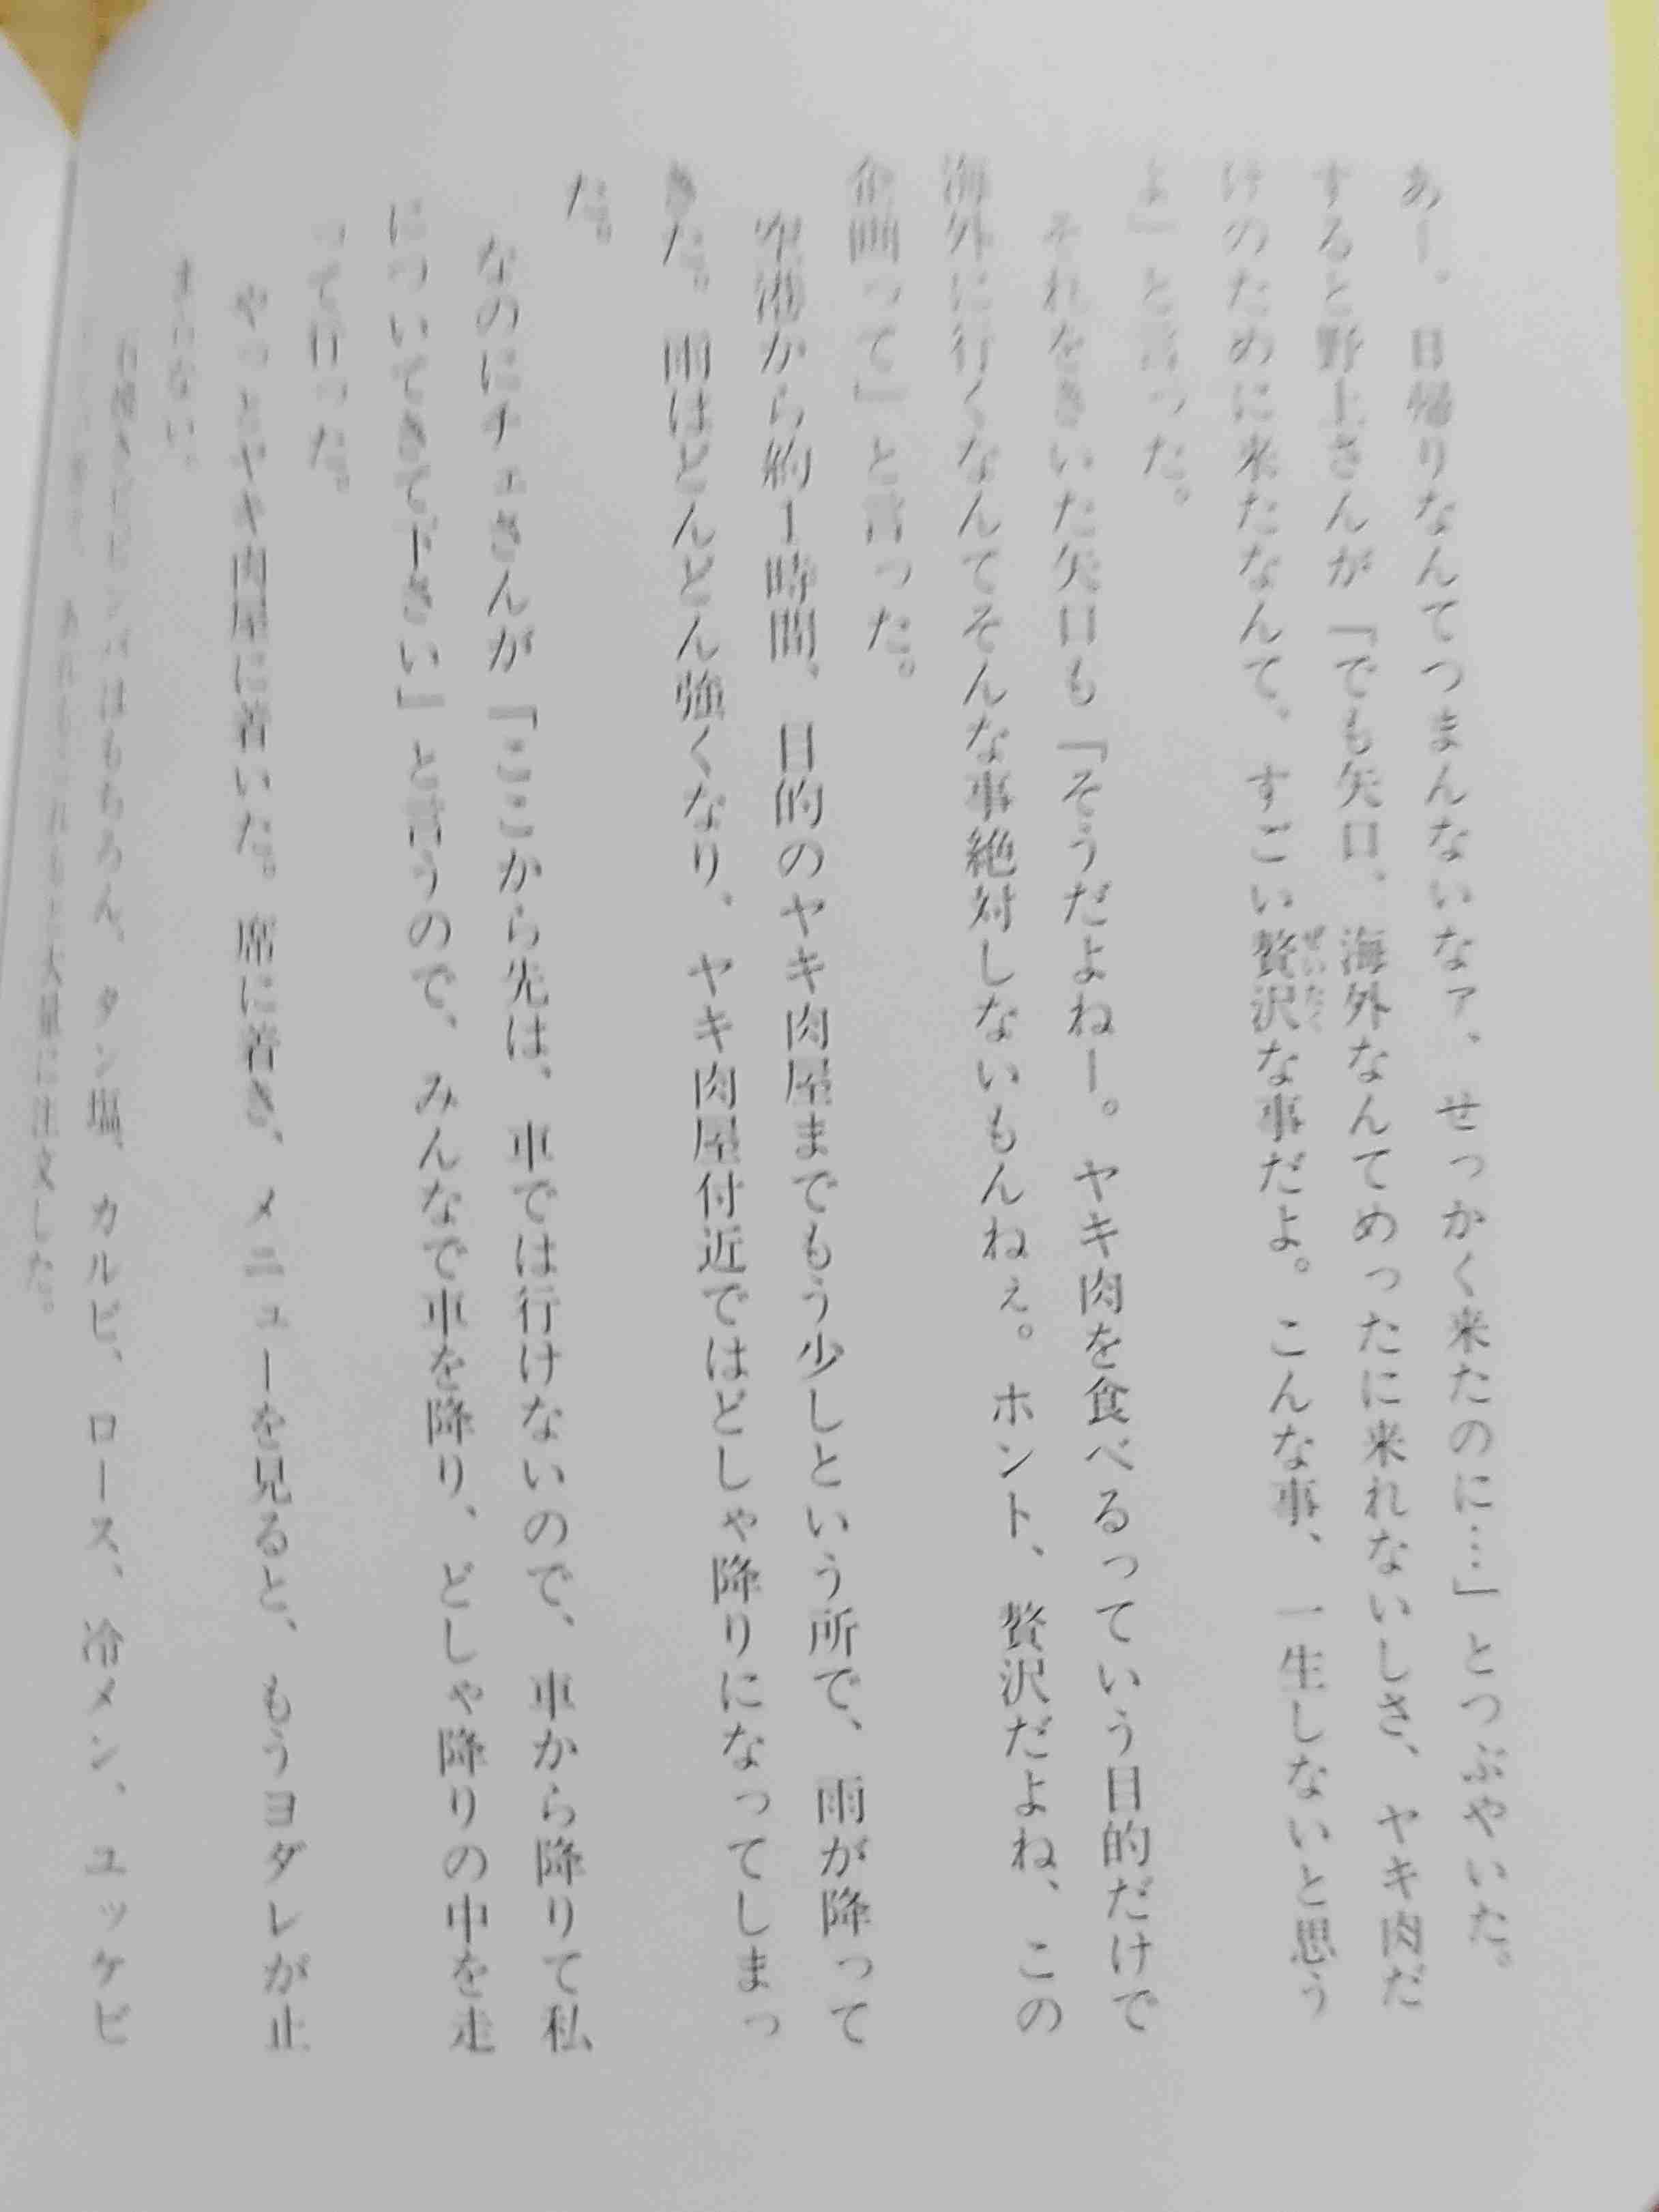 あー、日帰りなんてつまんないなァ、せっかく来たのに…」とつぶやいた。
すると野上さんが「でも矢口、海外なんてめったに来れないしさ、ヤキ肉だ
けのために来たなんて、すごい贅沢な事だよ。こんな事、一生しないと思う
よ」と言った。
それをきいた矢口も「そうだよねー。ヤキ肉を食べるっていう目的だけで
海外に行くなんてそんな事絶対しないもんねぇ。ホント、贅沢だよね、この
企画って」と言った。
空港から約1時間、目的のヤキ肉屋までもう少しという所で、雨が降って
きた。雨はどんどん強くなり、ヤキ肉屋付近ではどしゃ降りになってしまっ
た。
なのにチェさんが「ここから先は、車では行けないので、車から降りて私
についてきて下さい」と言うので、みんなで車を降り、どしゃ降りの中を走
って行った。
やっとヤキ肉屋に着いた。席に着き、メニューを見ると、もうヨダレが止
まらない。
石焼きビビンバはもちろん、タン塩、カルビ、ロース、冷メン、ユッケビ
大量に注文した。